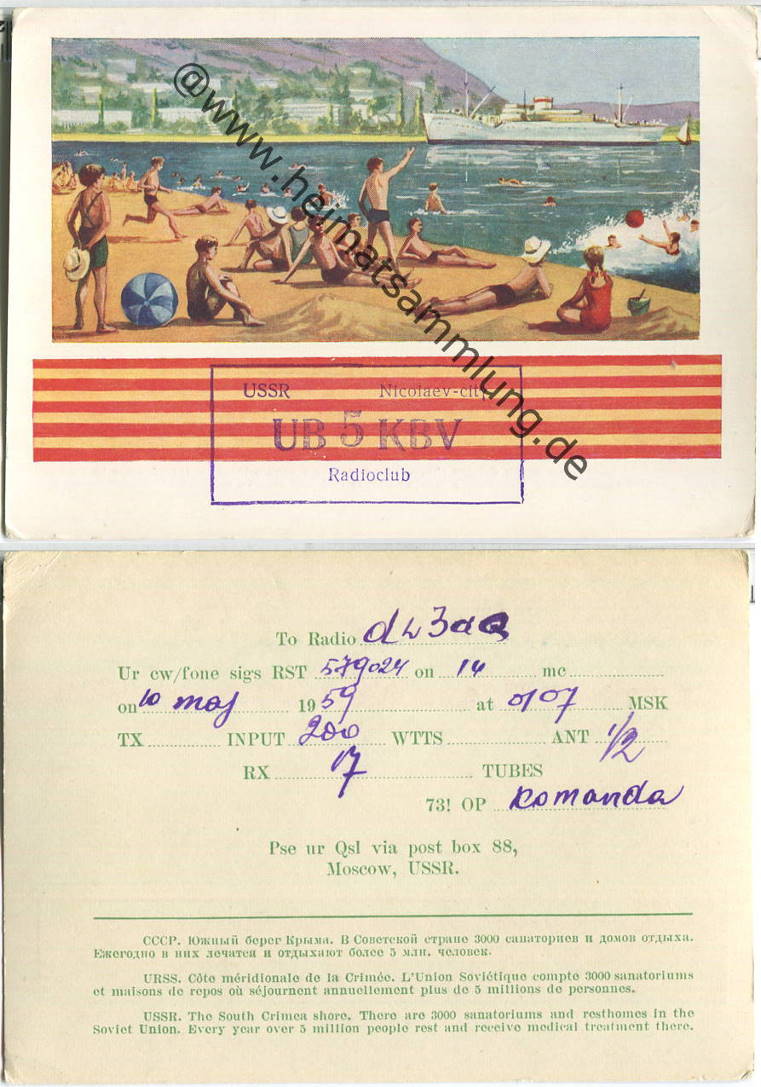 @www.heimatsammlung.de
USSR Nicolaev-city
UB 5 KBV
Radioclub
To Radio dL3aQ
Ur cw/fone sigs RST 579024 on 14 mc
on 10 maj 1959 at 0107 MSK
TX INPUT 200 WTTS ANT 1/2
RX 17 TUBES
73! OP Komanda
Pse ur Qsl via post box 88,
Moscow, USSR.
СССР. Южный берег Крыма. В Советской стране 3000 санаториев и домов отдыха.
Ежегодно в них лечатся и отдыхают более 5 млн. человек.
URSS. Côte méridionale de la Crimée. L'Union Soviétique compte 3000 sanatoriums
et maisons de repos où séjournent annuellement plus de 5 millions de personnes.
USSR. The South Crimea shore. There are 3000 sanatoriums and resthomes in the
Soviet Union. Every year over 5 million people rest and receive medical treatment there.